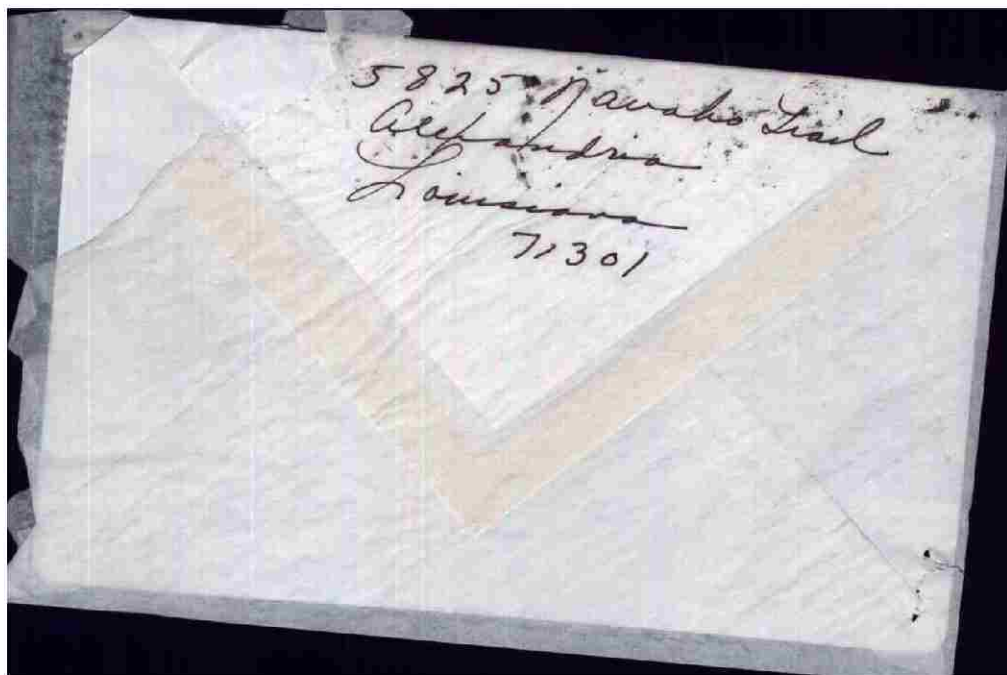 5825 Navaho Trail
Alexandria
Louisiana
71301